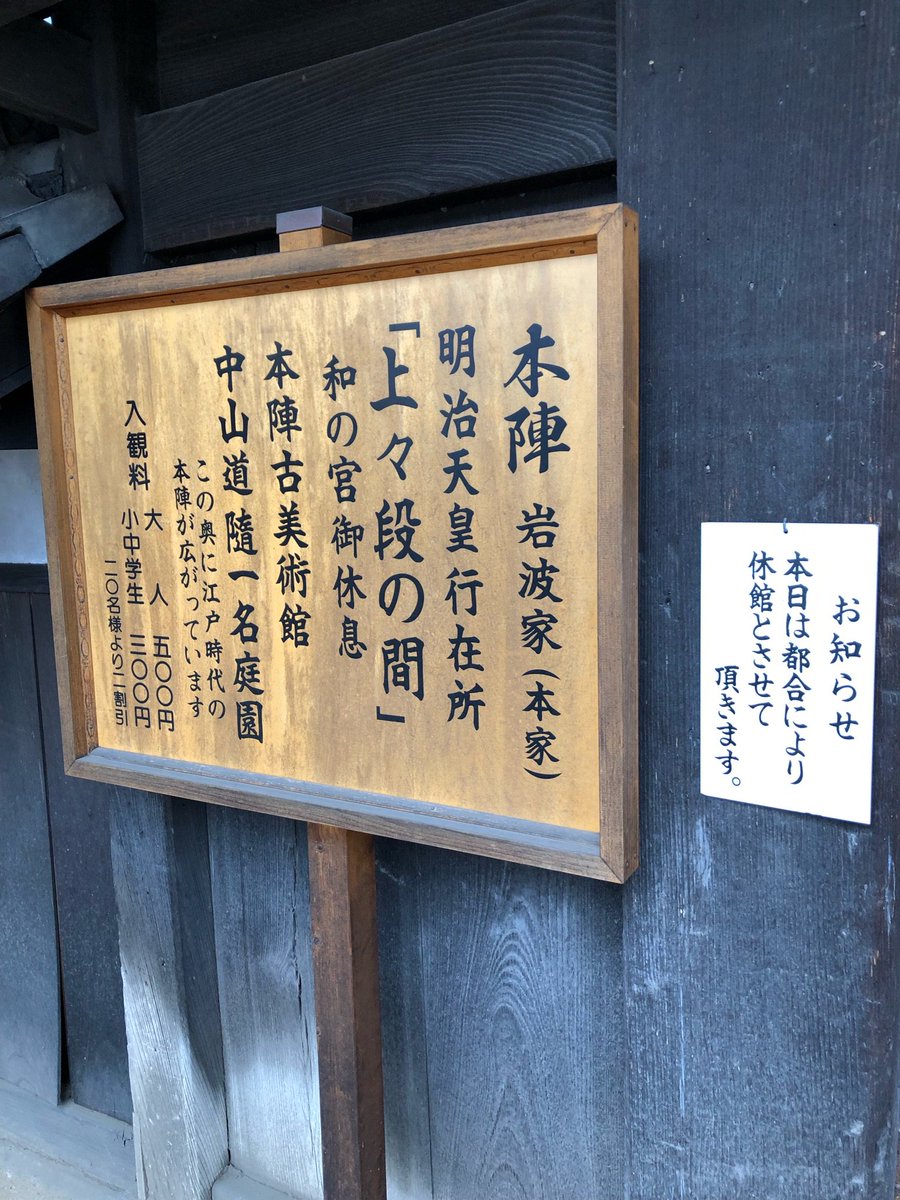 本陣 岩波家(本家)
明治天皇行在所
「上々段の間」
和の宮御休息
本陣古美術館
中山道隨一名庭園
この奥に江戸時代の
本陣が広がっています
入観料 大人 五〇〇円
小中学生 三〇〇円
二〇名様より二割引
お知らせ
本日は都合により
休館とさせて
頂きます。